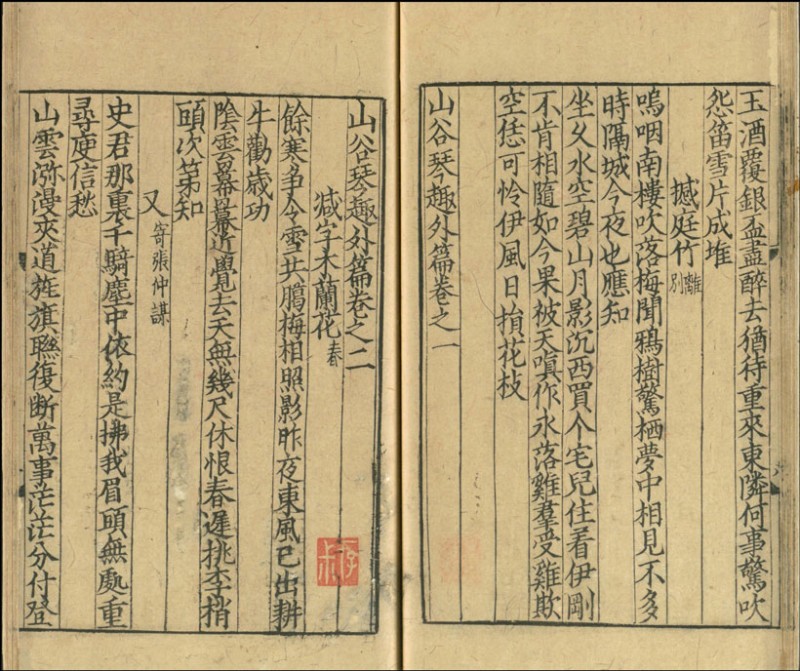 玉酒覆銀盃盡醉去猶待重來東隣何事驚吹
怨笛雪片成堆
撼庭竹 離別
嗚咽南樓吹落梅聞鴉樹驚栖夢中相見不多
時隔城今夜也應知
坐乆水空碧山月影沉西買个宅兒住着伊剛
不肯相隨如今果被天嗔作永落雞羣受雞欺
空恁可怜伊風日損花枝
山谷琴趣外篇卷之一
山谷琴趣外篇卷之二
减字木蘭花 春
餘寒争令雪共臈梅相照影昨夜東風已出耕
牛勸歳功
隂雲羃羃近覺去天無幾尺休恨春遲挑李梢
頭次第知
又 寄張仲謀
史君那裏千騎塵中依約是拂我眉頭無處重
尋庾信愁
山雲弥漫夾道旌旗聮復断萬事茫茫分付登